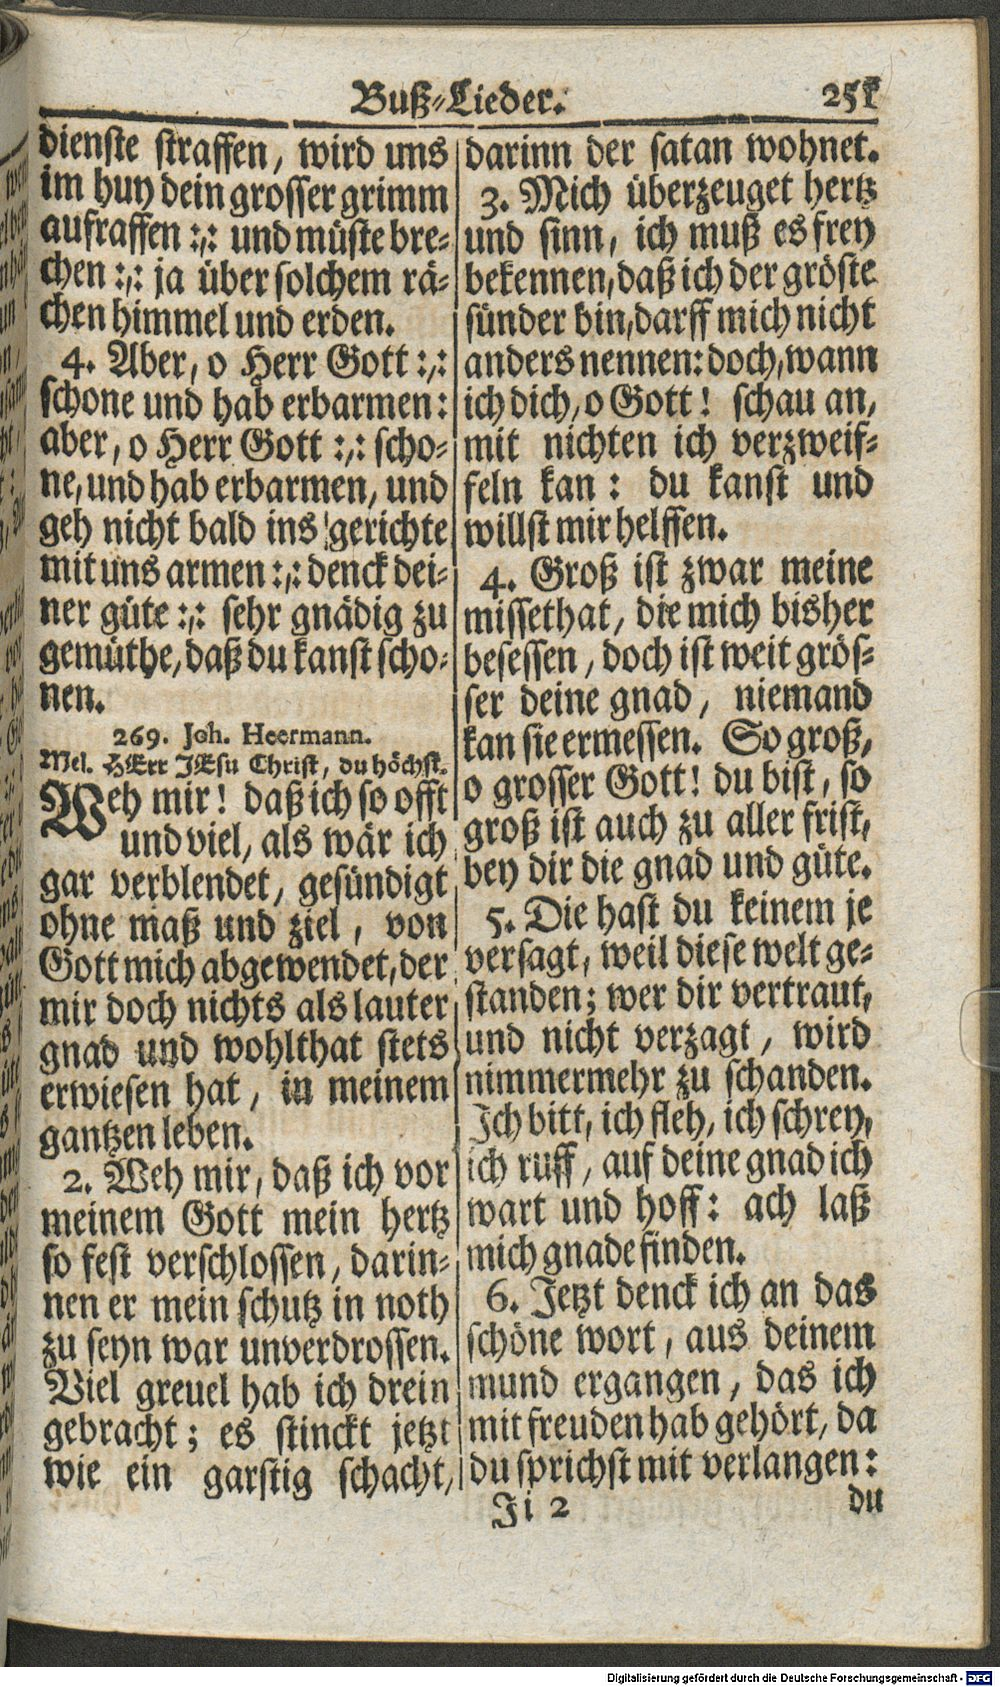 Buß-Lieder. 251
dienste straffen, wird uns
im huy dein grosser grimm
aufraffen :,: und müste bre-
chen :,: ja über solchem rä-
chen himmel und erden.
4. Aber, o Herr Gott :,:
schone und hab erbarmen:
aber, o Herr Gott :,: scho-
ne, und hab erbarmen, und
geh nicht bald ins gerichte
mit uns armen :,: denck dei-
ner güte :,: sehr gnädig zu
gemüthe, daß du kanst scho-
nen.
269. Joh. Heermann.
Mel. HErr JEsu Christ, du höchst.
Weh mir! daß ich so offt
und viel, als wär ich
gar verblendet, gesündigt
ohne maß und ziel, von
Gott mich abgewendet, der
mir doch nichts als lauter
gnad und wohlthat stets
erwiesen hat, in meinem
gantzen leben.
2. Weh mir, daß ich vor
meinem Gott mein hertz
so fest verschlossen, darin-
nen er mein schutz in noth
zu seyn war unverdrossen.
Viel greuel hab ich drein
gebracht; es stinckt jetzt
wie ein garstig schacht,
darinn der satan wohnet.
3. Mich überzeuget hertz
und sinn, ich muß es frey
bekennen, daß ich der gröste
sünder bin, darff mich nicht
anders nennen: doch, wann
ich dich, o Gott! schau an,
mit nichten ich verzweif-
feln kan: du kanst und
willst mir helffen.
4. Groß ist zwar meine
missethat, die mich bisher
besessen, doch ist weit grös-
ser deine gnad, niemand
kan sie ermessen. So groß,
o grosser Gott! du bist, so
groß ist auch zu aller frist,
bey dir die gnad und güte.
5. Die hast du keinem je
versagt, weil diese welt ge-
standen; wer dir vertraut,
und nicht verzagt, wird
nimmermehr zu schanden.
Ich bitt, ich fleh, ich schrey,
ich ruff, auf deine gnad ich
wart und hoff: ach laß
mich gnade finden.
6. Jetzt denck ich an das
schöne wort, aus deinem
mund ergangen, das ich
mit freuden hab gehört, da
du sprichst mit verlangen:
Ji 2 du
Digitalisierung gefördert durch die Deutsche Forschungsgemeinschaft - DFG